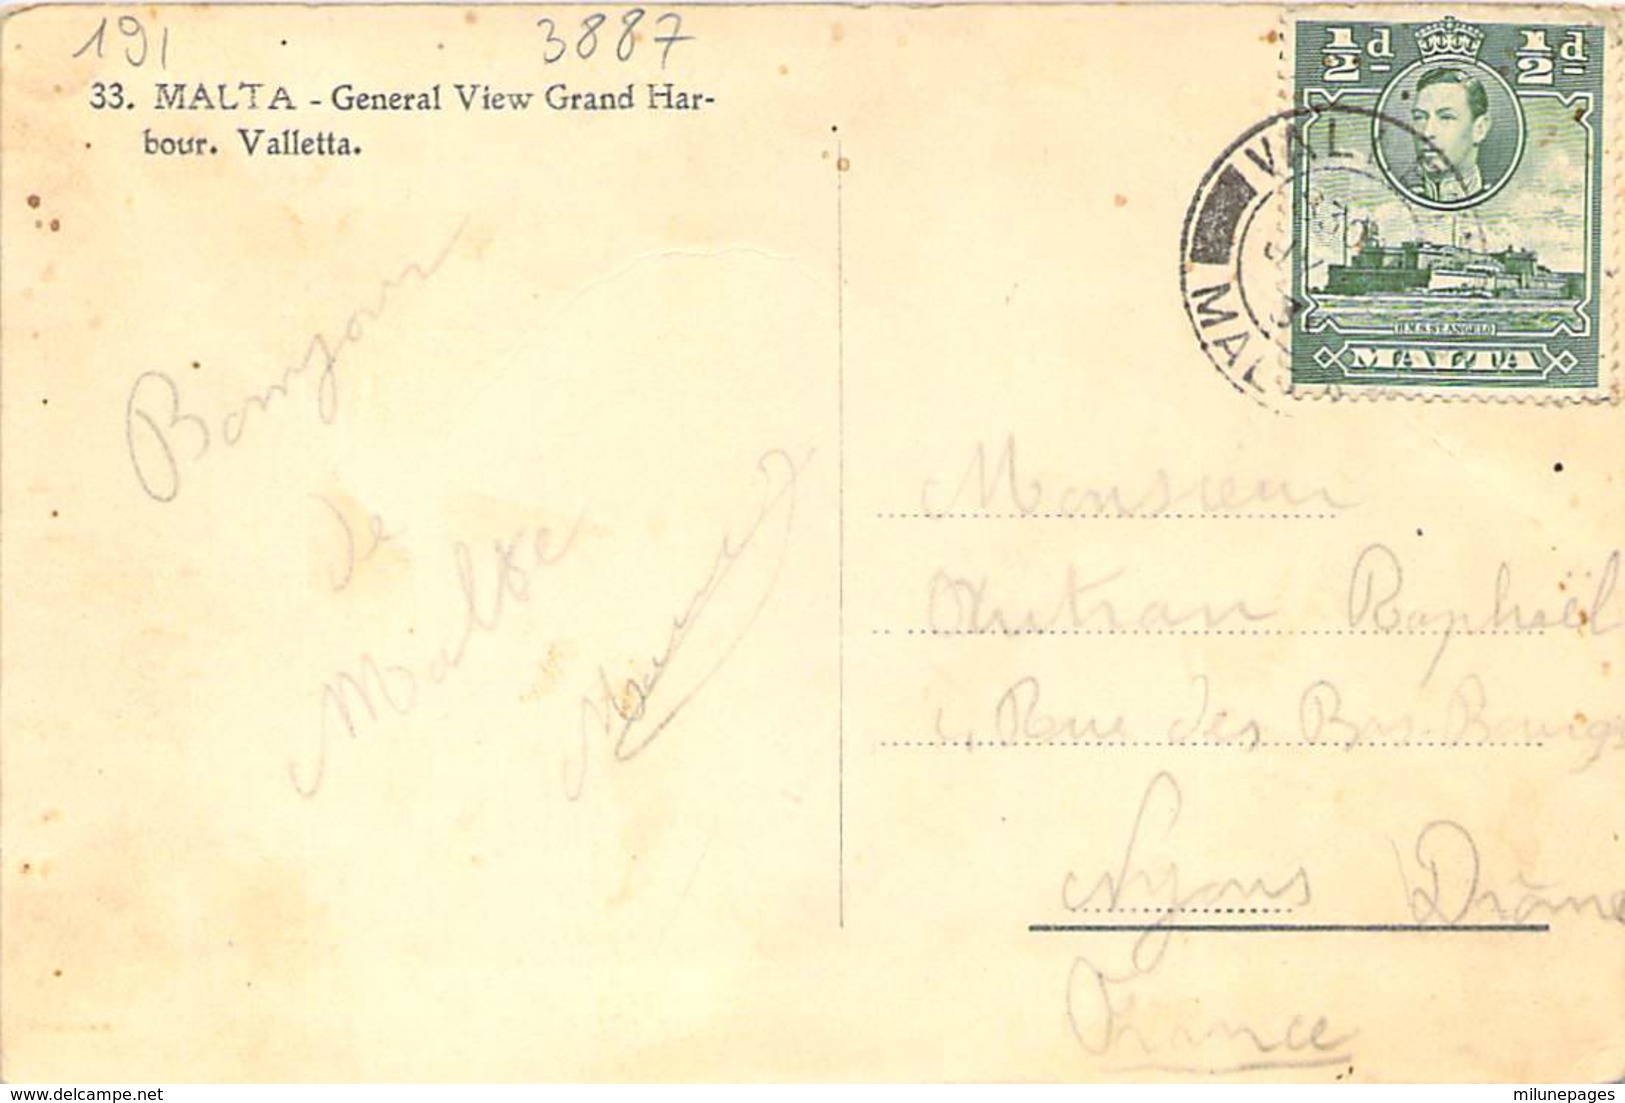 191 3887
33. MALTA - General View Grand Har-
bour. Valletta.
½d ½d
H.M.S. ST. ANGELO
MALTA
VALLETTA
MALTA
Bonjour
de
Malte
Monsieur
Autran Raphaël
4, Rue des Bas-Bourgs
Nyons Drôme
France
delcampe.net
milunepages